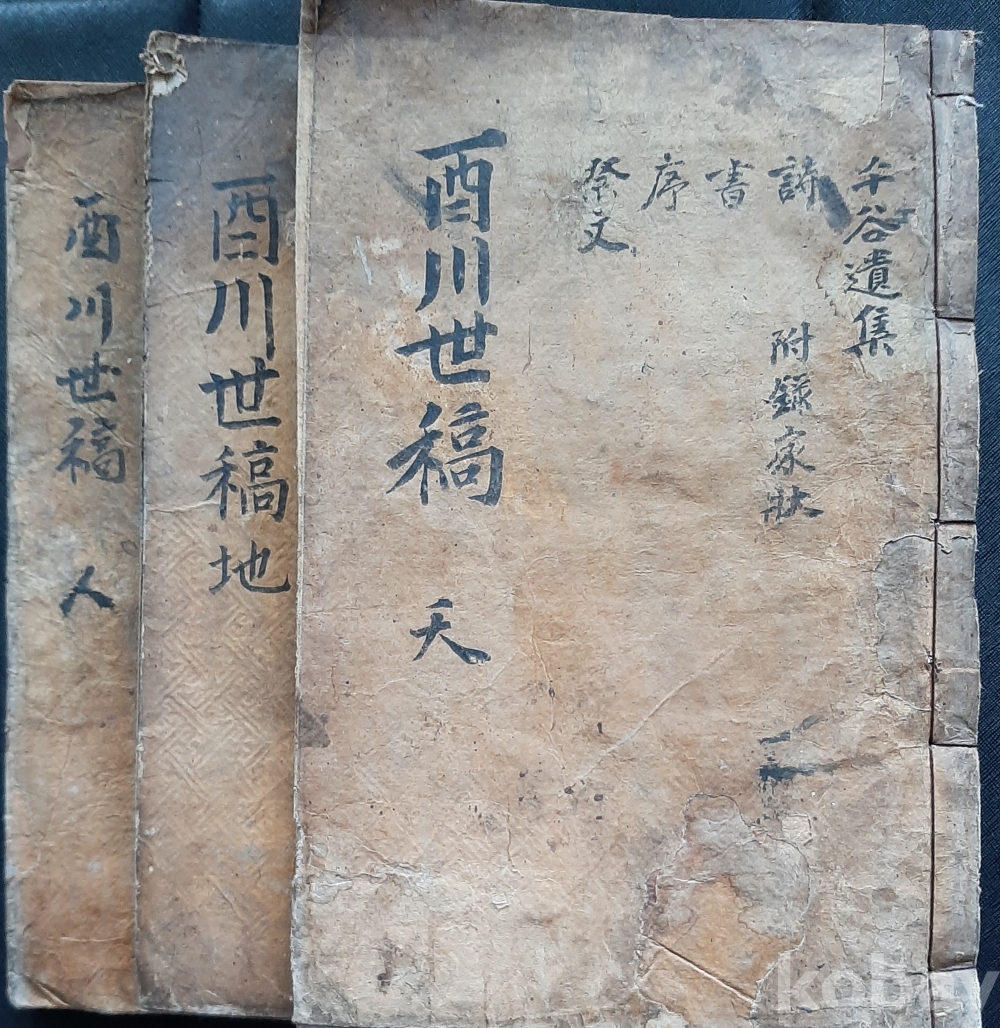 千谷遺集
詩
附錄家狀
書
序
祭文
酉川世稿 天
酉川世稿 地
酉川世稿 人
kobay